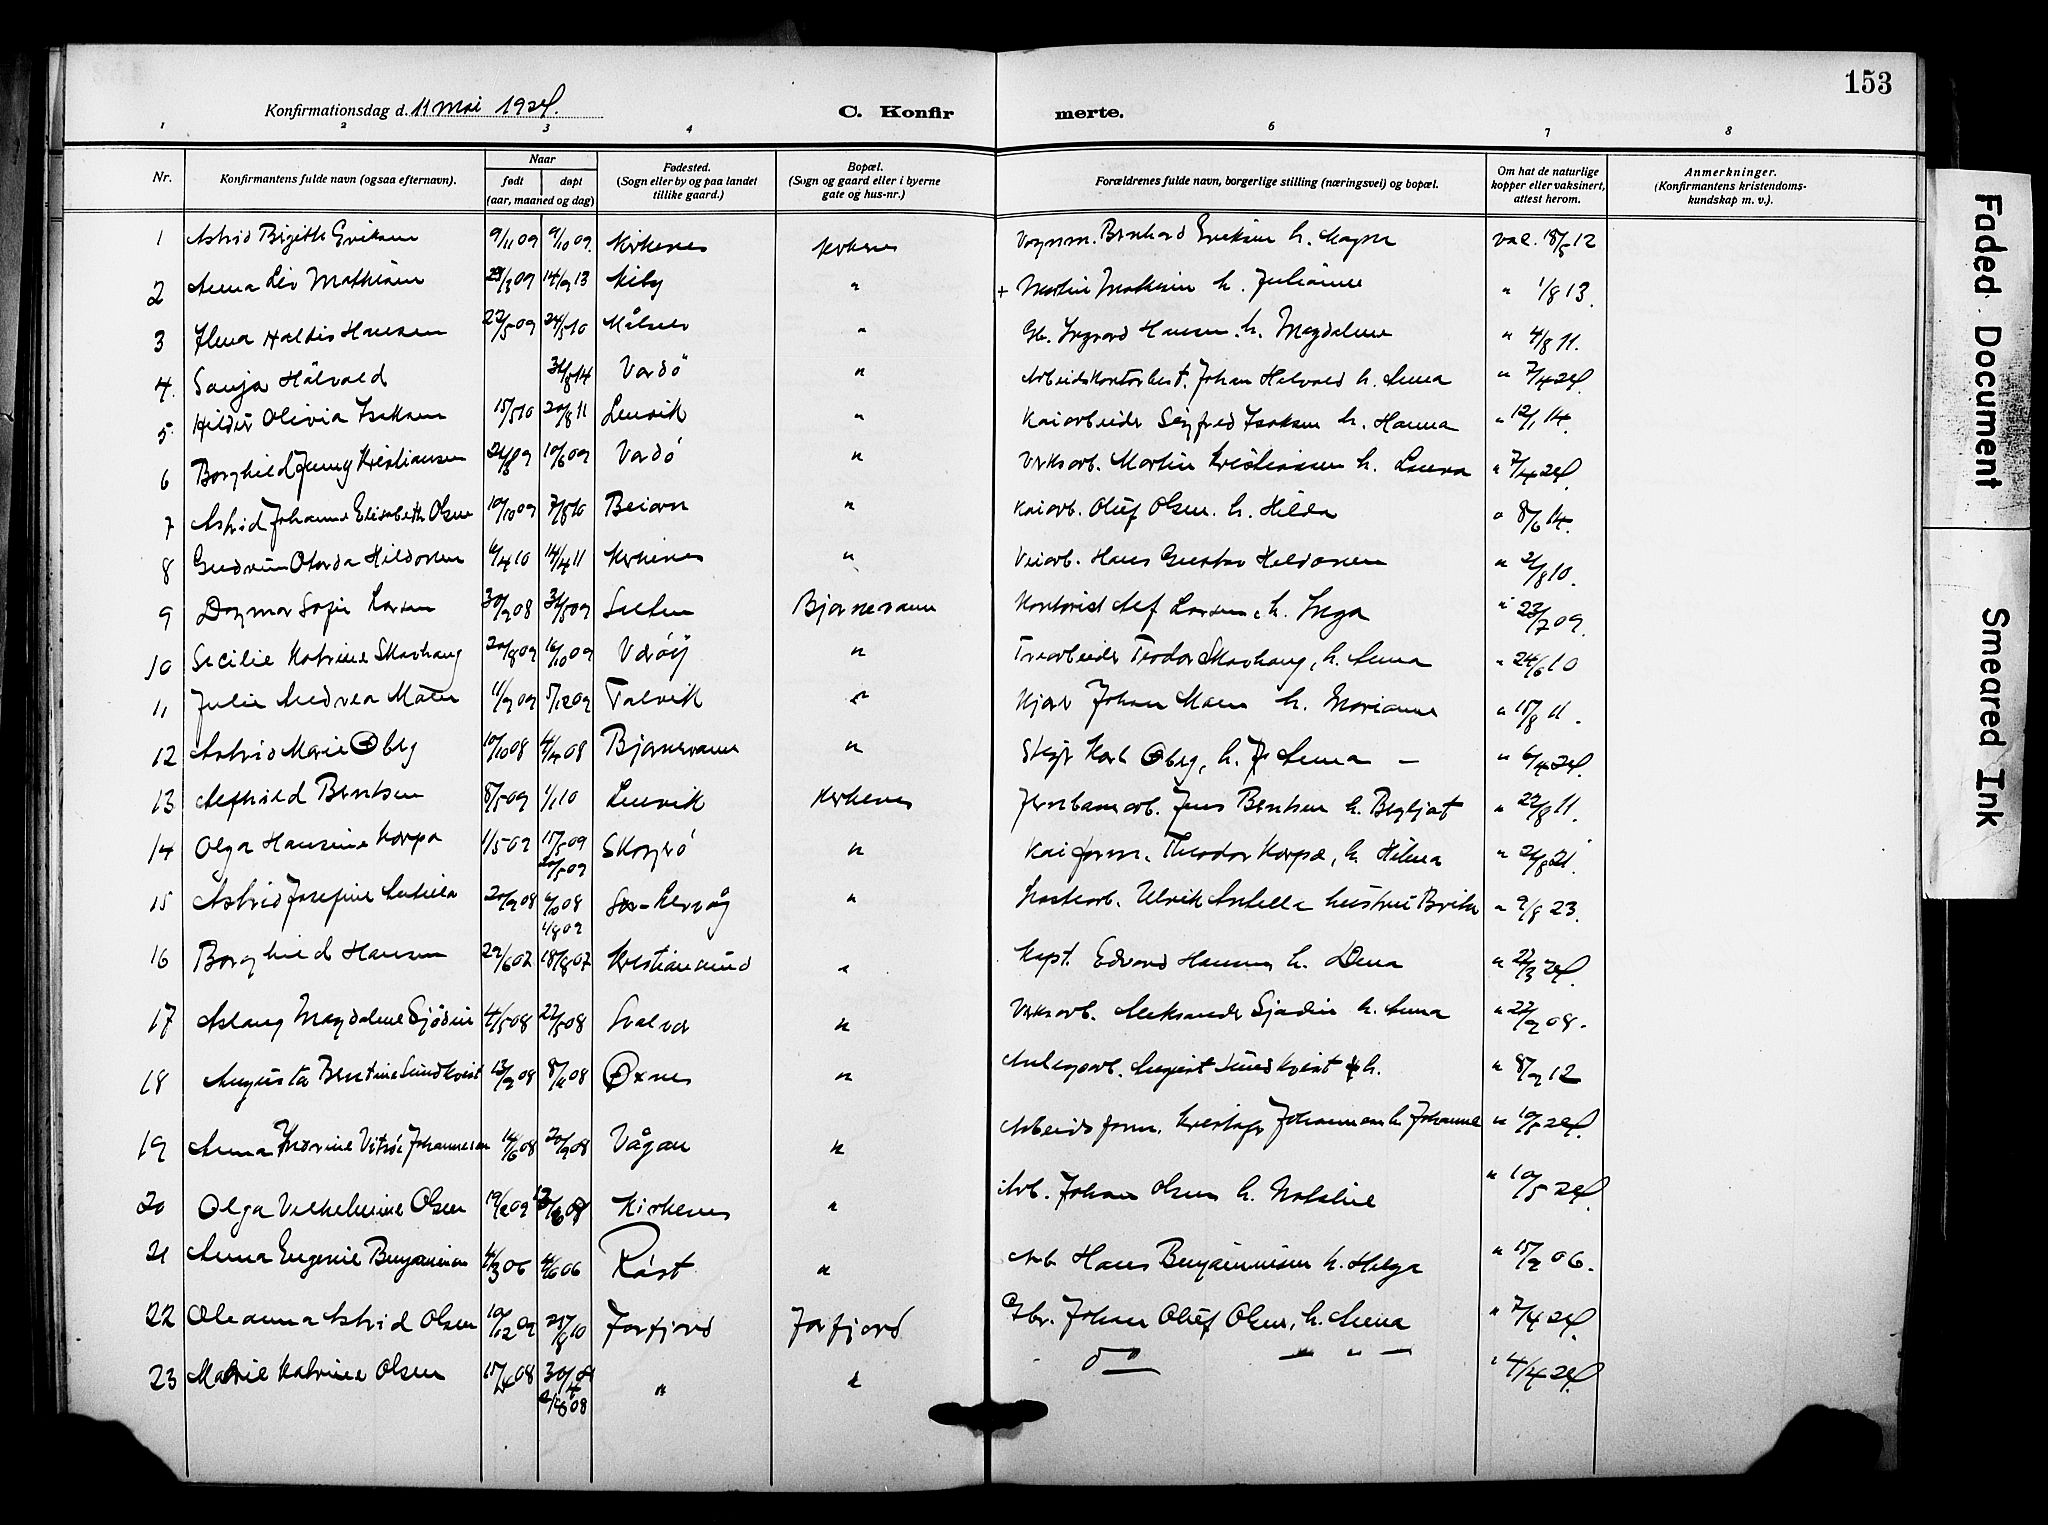 153
Konfirmationsdag d. 11 mai 1924.
C. Konfir merte.
1 2 3 4 6 7 8
Nr. Konfirmantens fulde navn (ogsaa efternavn). Naar født døpt (aar, maaned og dag) Fødested. (Sogn eller by og paa landet tillike gaard.) Bopæl. (Sogn og gaard eller i byerne gate og hus-nr.) Forældrenes fulde navn, borgerlige stilling (næringsvei) og bopæl. Om hat de naturlige kopper eller vaksinert, attest herom. Anmerkninger. (Konfirmantens kristendomskundskap m. v.).
1 Astrid Birgitte Eriksen 9/11 09 9/10 09. Kirkenes Kirkenes Bernhard Eriksen h. Magna vac. 18/5 12
2 Anna Liv Mathisen 29/3 09 14/9 13 Kiby " + Martin Mathisen h. Julianne " 1/8 13.
3 Haldis Hansen 22/5 09 24/5 10 Målselv " Gb. Ingvard Hansen. h. Magdalene " 4/8 11.
4. Sanja Hälvald 31/8 14 Vardö " Arbeidskontorbest. Johan Helvald h. Anna " 7/4 24.
5. Hildur Olivia Isaksen 15/5 10 20/8 11 Lenvik " Kaiarbeider Sigfred Isaksen h. Hanna " 12/1 14.
6 Borghild Jenny Kristiansen 10/6 09 Vardö " Verksarb. Martin Kristiansen h. Laura " 7/4 24.
7 Astrid Johanne Elisabeth Olsen 10/10 09 7/8 10 Beiarn " Kaiarb. Oluf Olsen. h. Hilda " 8/6 14.
8 Gudrun Hildonen 6/4 10 14/4 11 Kirkenes " Veiarb. Hans Gustav Hildonen " 2/8 10.
9 Dagmar Sofie Larsen 30/9 08 31/5 09 Salten Bjørnevann Kontorist Alf Larsen, h. Inga " 23/7 09.
10 Secilie Katrine Skavhaug 20/8 09 16/10 09 Værøy " Træarbeider Teodor Skavhaug, h. Anna " 24/6 10
11 Julie Andrea 11/9 09 5/12 09 Talvik " Johan h. Marianne " 15/8 11.
12 Astrid Marie Øberg 10/10 08 4/4 08 Bjørnevann " Stiger Karl Øberg, h. Anna — " 6/4 24.
13 Alfhild Berntsen 8/5 09 1/1 10 Lenvik Kirkenes Jernbanearb. Jens Berntsen h. Bergljot " 22/8 11.
14 Olga Hansine Korpa 1/5 09 15/5 09 20/5 09 Skogerø " Kaiform. Theodor Korpa, h. Hilma " 21/8 21.
15 Astrid Josefine Antilla 20/9 08 6/10 08 1/8 09 " Ulrik Antilla hustru Brita " 9/8 23.
16 Borghild Hansen 29/6 07 18/8 07 Kristiansund " Kapt. Edvard Hansen h. Dena " 22/3 24.
17 Aslaug Magdalene Sjödin 4/5 08 22/5 08 Svolvær " Verksarb. Aleksander Sjødin h. Anna " 22/9 08.
18 Augusta Bentine Lundkvist 13/9 08 8/11 08 Øxnes " Anlegsarb. August Lundkvist h. " 8/9 12
19 Anna Johannesen 14/6 08 20/9 08 Vågan " Arbeidsform. Kristofer Johannesen h. Johanne " 10/5 24.
20 Olga Vilhelmine Olsen 19/2 09 Kirkenes " Arb. Johan Olsen h. Nataline " 10/5 24.
21 Anna Eugenie Benjaminsen 4/3 06 4/6 06 Røst " Arb Hans Benjaminsen h. Helga " 15/9 06.
22 Oleanna Astrid Olsen 10/12 09 21/8 10 Jarfjord Jarfjord Gbr. Johan Oluf Olsen, h. Anna " 7/4 24.
23 Marie Katrine Olsen 15/4 08 " " do — " — " 4/4 24.
Faded Document
Smeared Ink